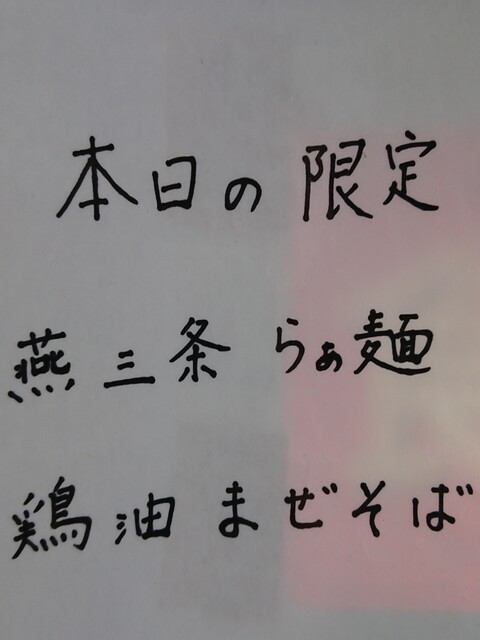 本日の限定
燕三条らぁ麺
鶏油まぜそば